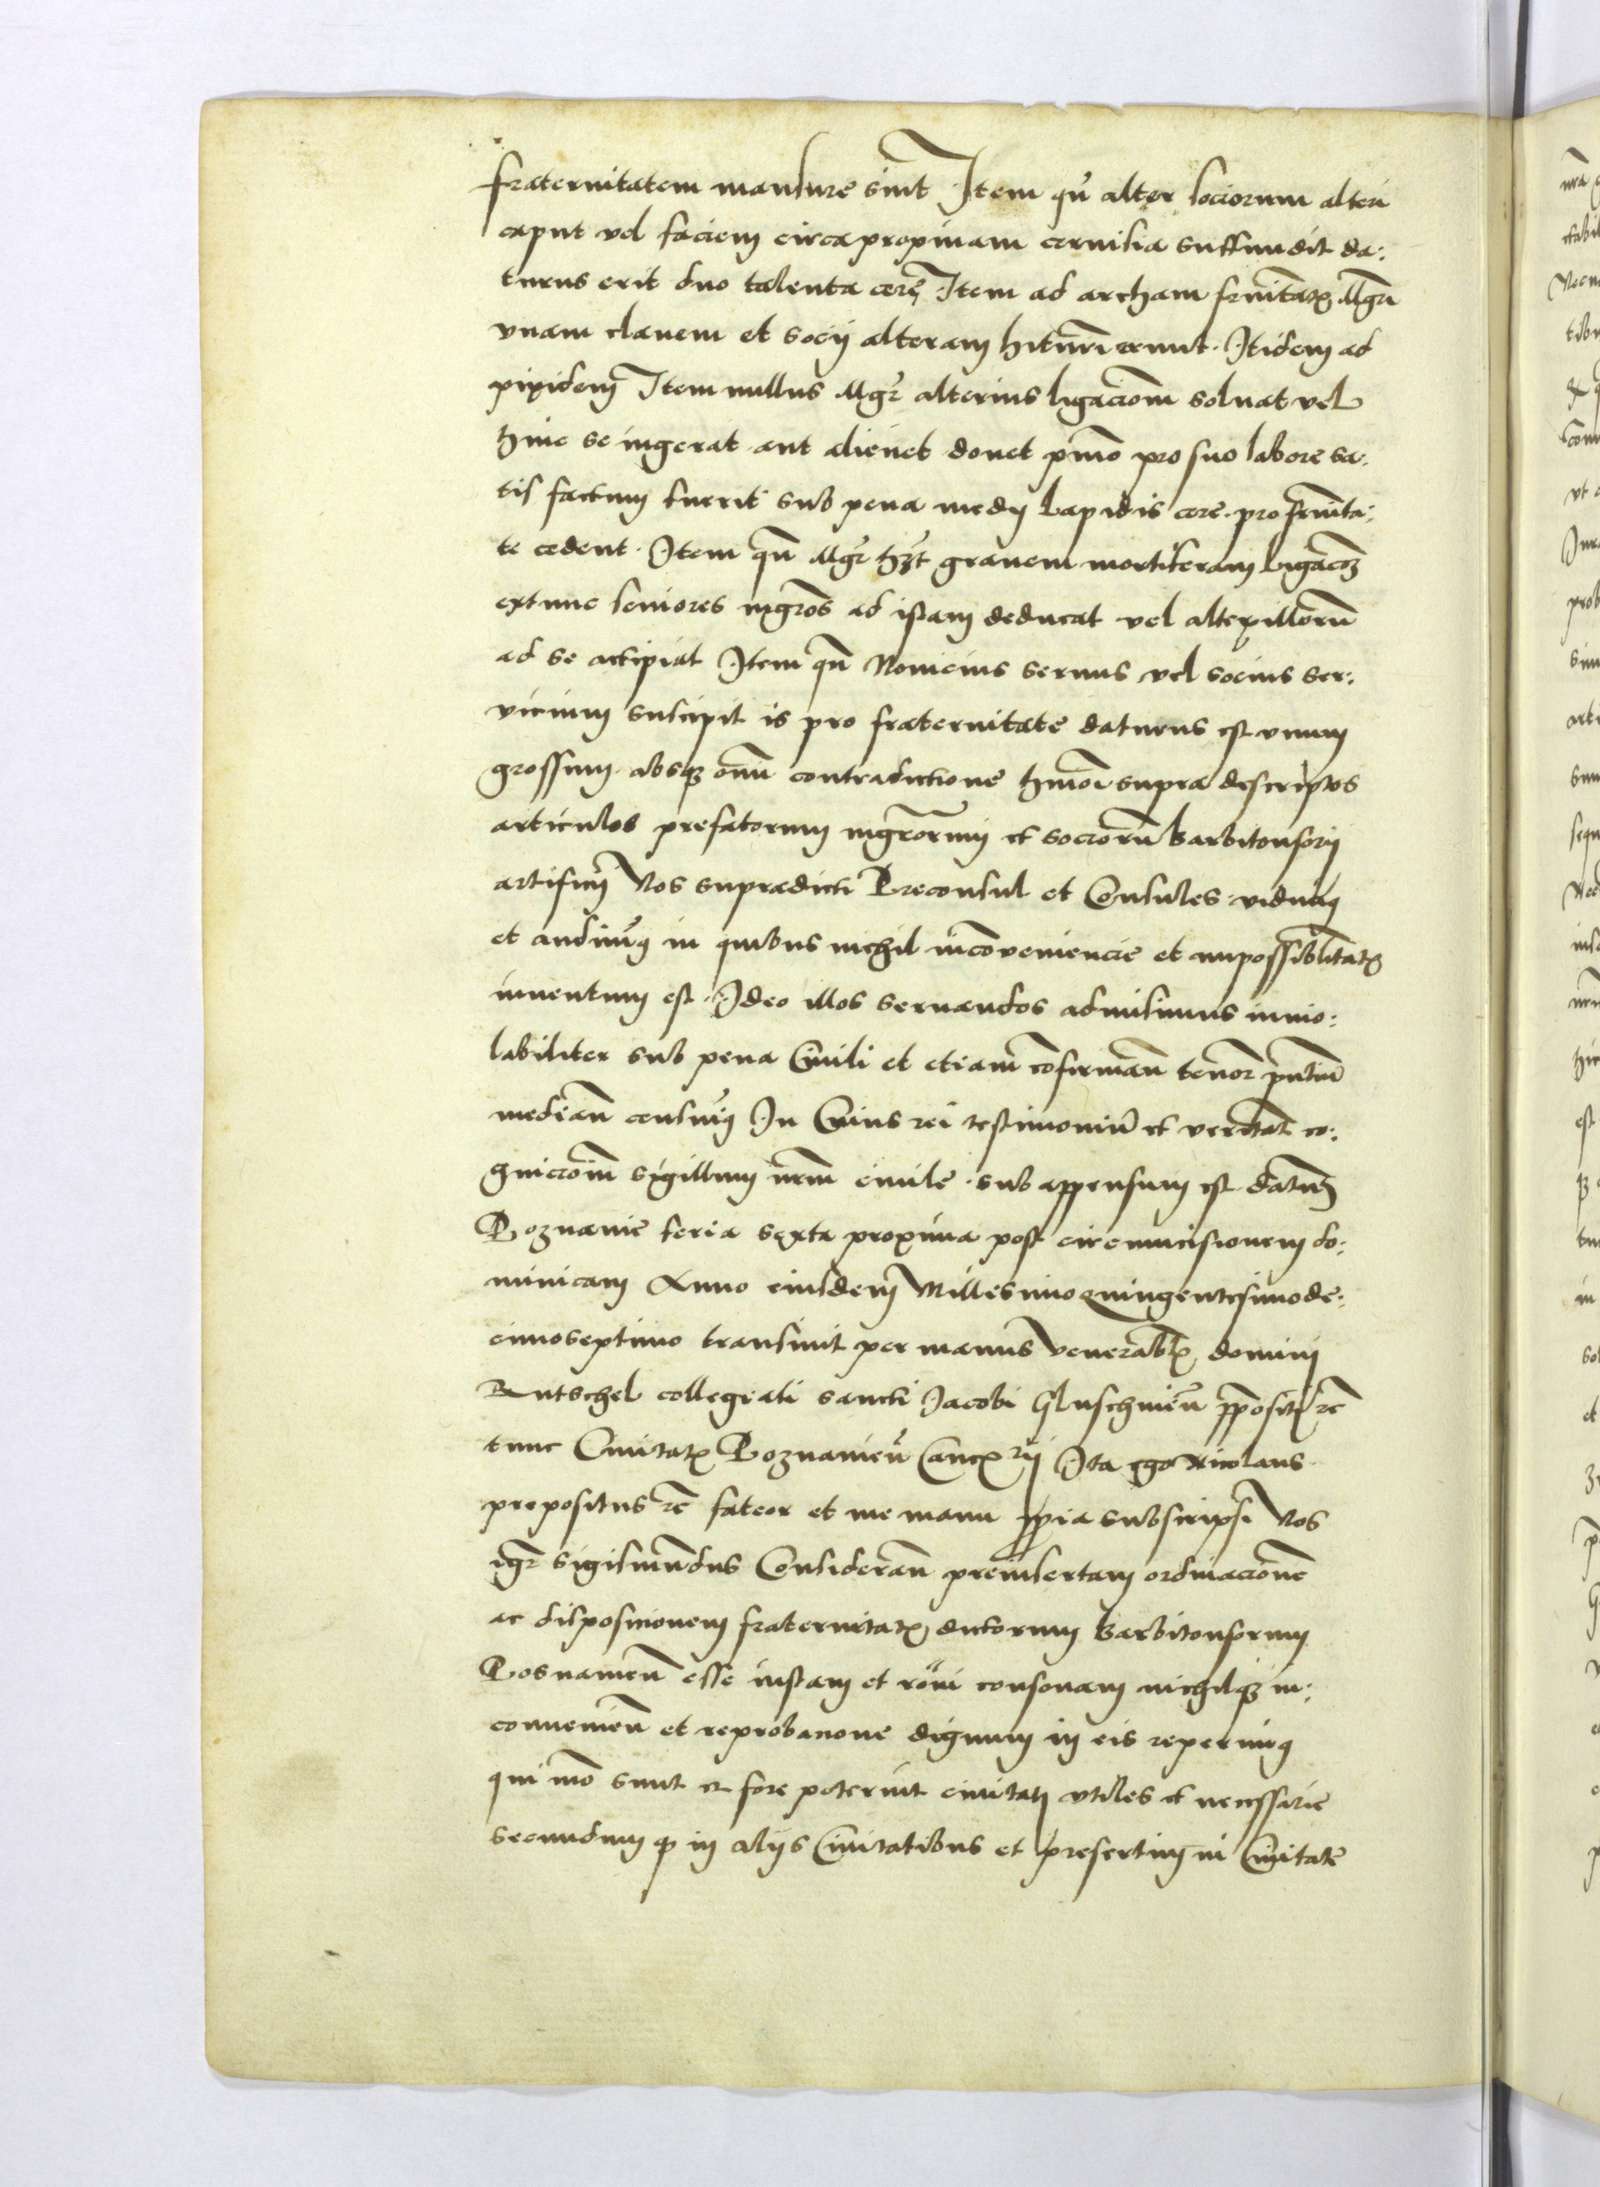 fraternitatem mansure sint Item qñ alter sociorum alteri
caput vel faciem circa propinam cervisia suffundit da:
turus erit duo talenta cere Item ad archam frnitatis Mgri
vnam clavem et socii alteram hituri erunt. Itidem ad
pixidem Item nullus Mgr alterius ligaciom solvat vel
huic se ingerat aut alienet donec pmo pro suo labore sa:
tis factum fuerit sub pena medii lapidis cere pro frnita:
te cedent. Item qñ Mgr hzt gravem mortiferam ligacoz
extunc seniores mgros ad istam deducat vel alterillorum
ad se accipiat Item qñ Novicius servus vel socius ser:
vicium suscipit is pro fraternitate daturus est vnum
grossum absqz omni contradictione hmoi supra descriptos
articulos prefatorum mgrorum et sociorum barbitonsorii
artificii Nos supradicti Preconsul et Consules vidimus
et audivimus in quibus nichil inconveniencie et impossiblitatis
inventum est. Ideo illos servandos admisimus invio:
labiliter sub pena Civili et etiam cofirmañ tenor pntium
mediañ censuimus In Cuius rei testimonium et veritat co:
gniciom sigillum nrm civile sub appensum est datum
Poznanie feria sexta proxima post circumcisionem do:
minicam Anno eiusdem Millesimoquingentesimode:
cimoseptimo transivit per manus venerablis domini
Rutschel collegiati sancti Jacobi Gluschovieñ ppositi rc
tunc Civitatis Poznanieñ Cancrii Ita ego Nicolaus
propositus rc fateor et me manu ppia subscripsi Nos
igr sigismundus Considerañ preinsertam ordinacione
ac disposicionem fraternitatis dictorum barbitonsorum
Posnanieñ esse iustam et roni consonam nichilqz in:
convenieñ et reprobacione dignum in eis reperimus
qui imo sunt et fore poterint civitati vtiles et necessarie
secundum qz in aliis Civitatibus et presertim in Civitate